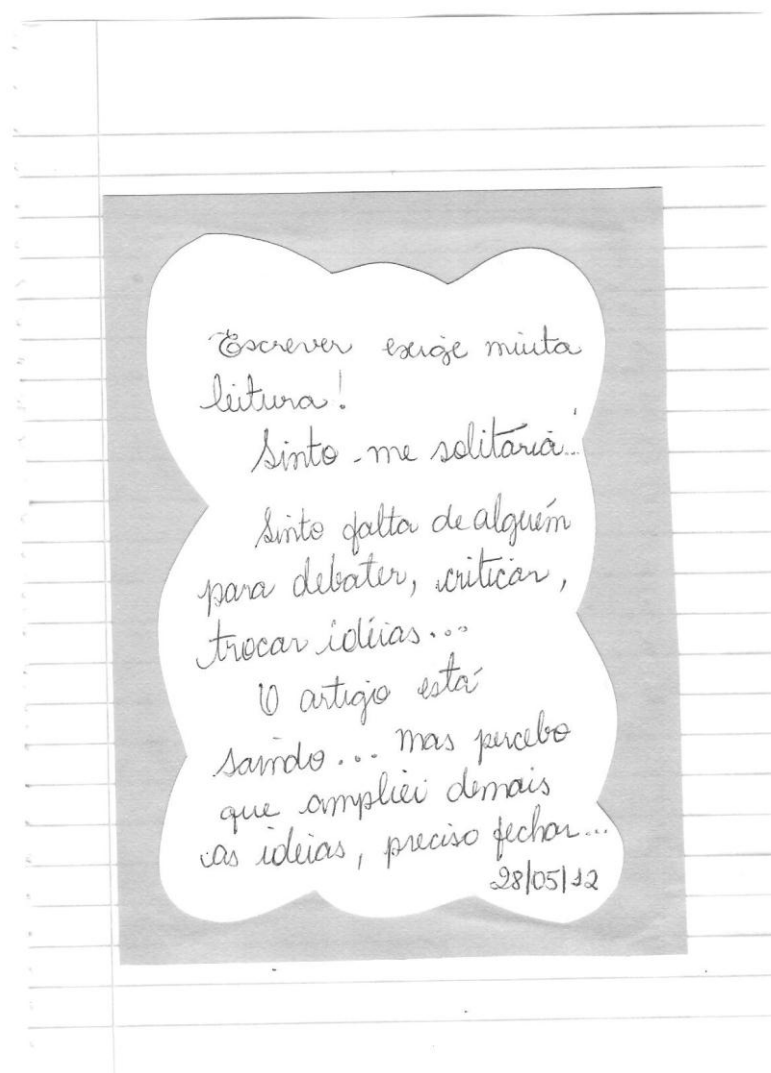 Escrever exige muita
leitura!
Sinto-me solitária...
Sinto falta de alguém
para debater, criticar,
trocar idéias...
O artigo está
saindo... mas percebo
que ampliei demais
as idéias, preciso fechar...
28/05/12